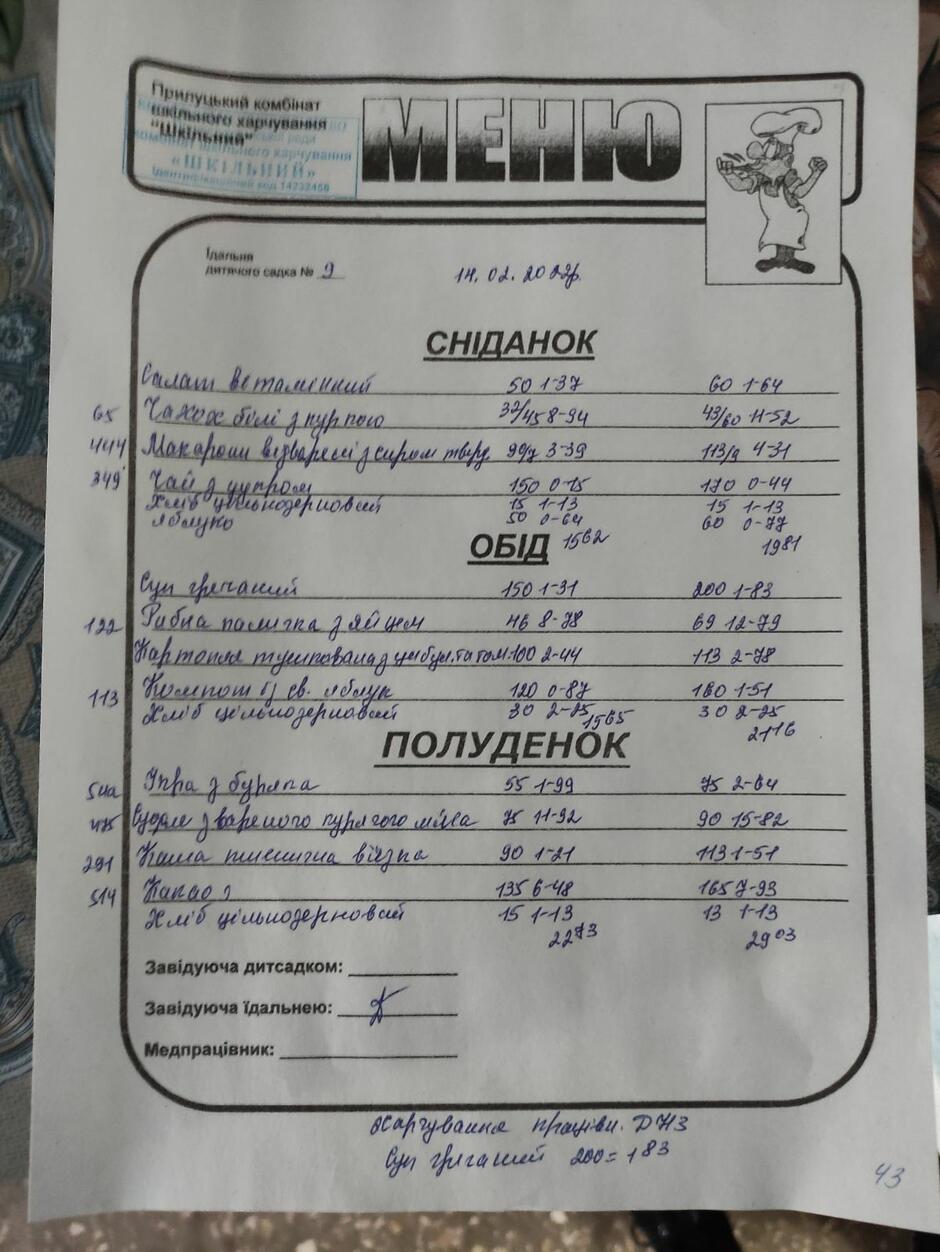 Прилуцький комбінат
шкільного харчування
"Шкільний"
МЕНЮ
комбінат шкільного харчування
«ШКІЛЬНИЙ»
Ідентифікаційний код 14232458
Їдальня
дитячого садка № 9
14.02.2022р.
СНІДАНОК
Салат вітамінний 50 1-37 60 1-64
65 Чахохбілі з куркою 32/45 8-94 43/60 11-52
444 Макарони відварені з сиром тверд 99/7 3-39 113/9 4-31
349 Чай з цукром 150 0-15 170 0-44
Хліб цільнозерновий 15 1-13 15 1-13
яблуко 50 0-64 60 0-77
1562 1981
ОБІД
Суп гречаний 150 1-31 200 1-83
122 Рибна паличка з яйцем 46 8-78 69 12-79
Картопля тушкована з цибул. та том. 100 2-44 113 2-78
113 Компот із св. яблук 120 0-87 160 1-51
Хліб цільнозерновий 30 2-25 30 2-25
1565 2116
ПОЛУДЕНОК
54а Ікра з буряка 55 1-99 75 2-64
475 Суфле з вареного курячого мяса 75 11-92 90 15-82
291 Каша пшенична вязка 90 1-21 113 1-51
514 Какао з 135 6-48 165 7-93
Хліб цільнозерновий 15 1-13 13 1-13
2273 2903
Завідуюча дитсадком:
Завідуюча їдальнею:
Медпрацівник:
Харчування праціви. ДНЗ
Суп гречаний 200= 183
43